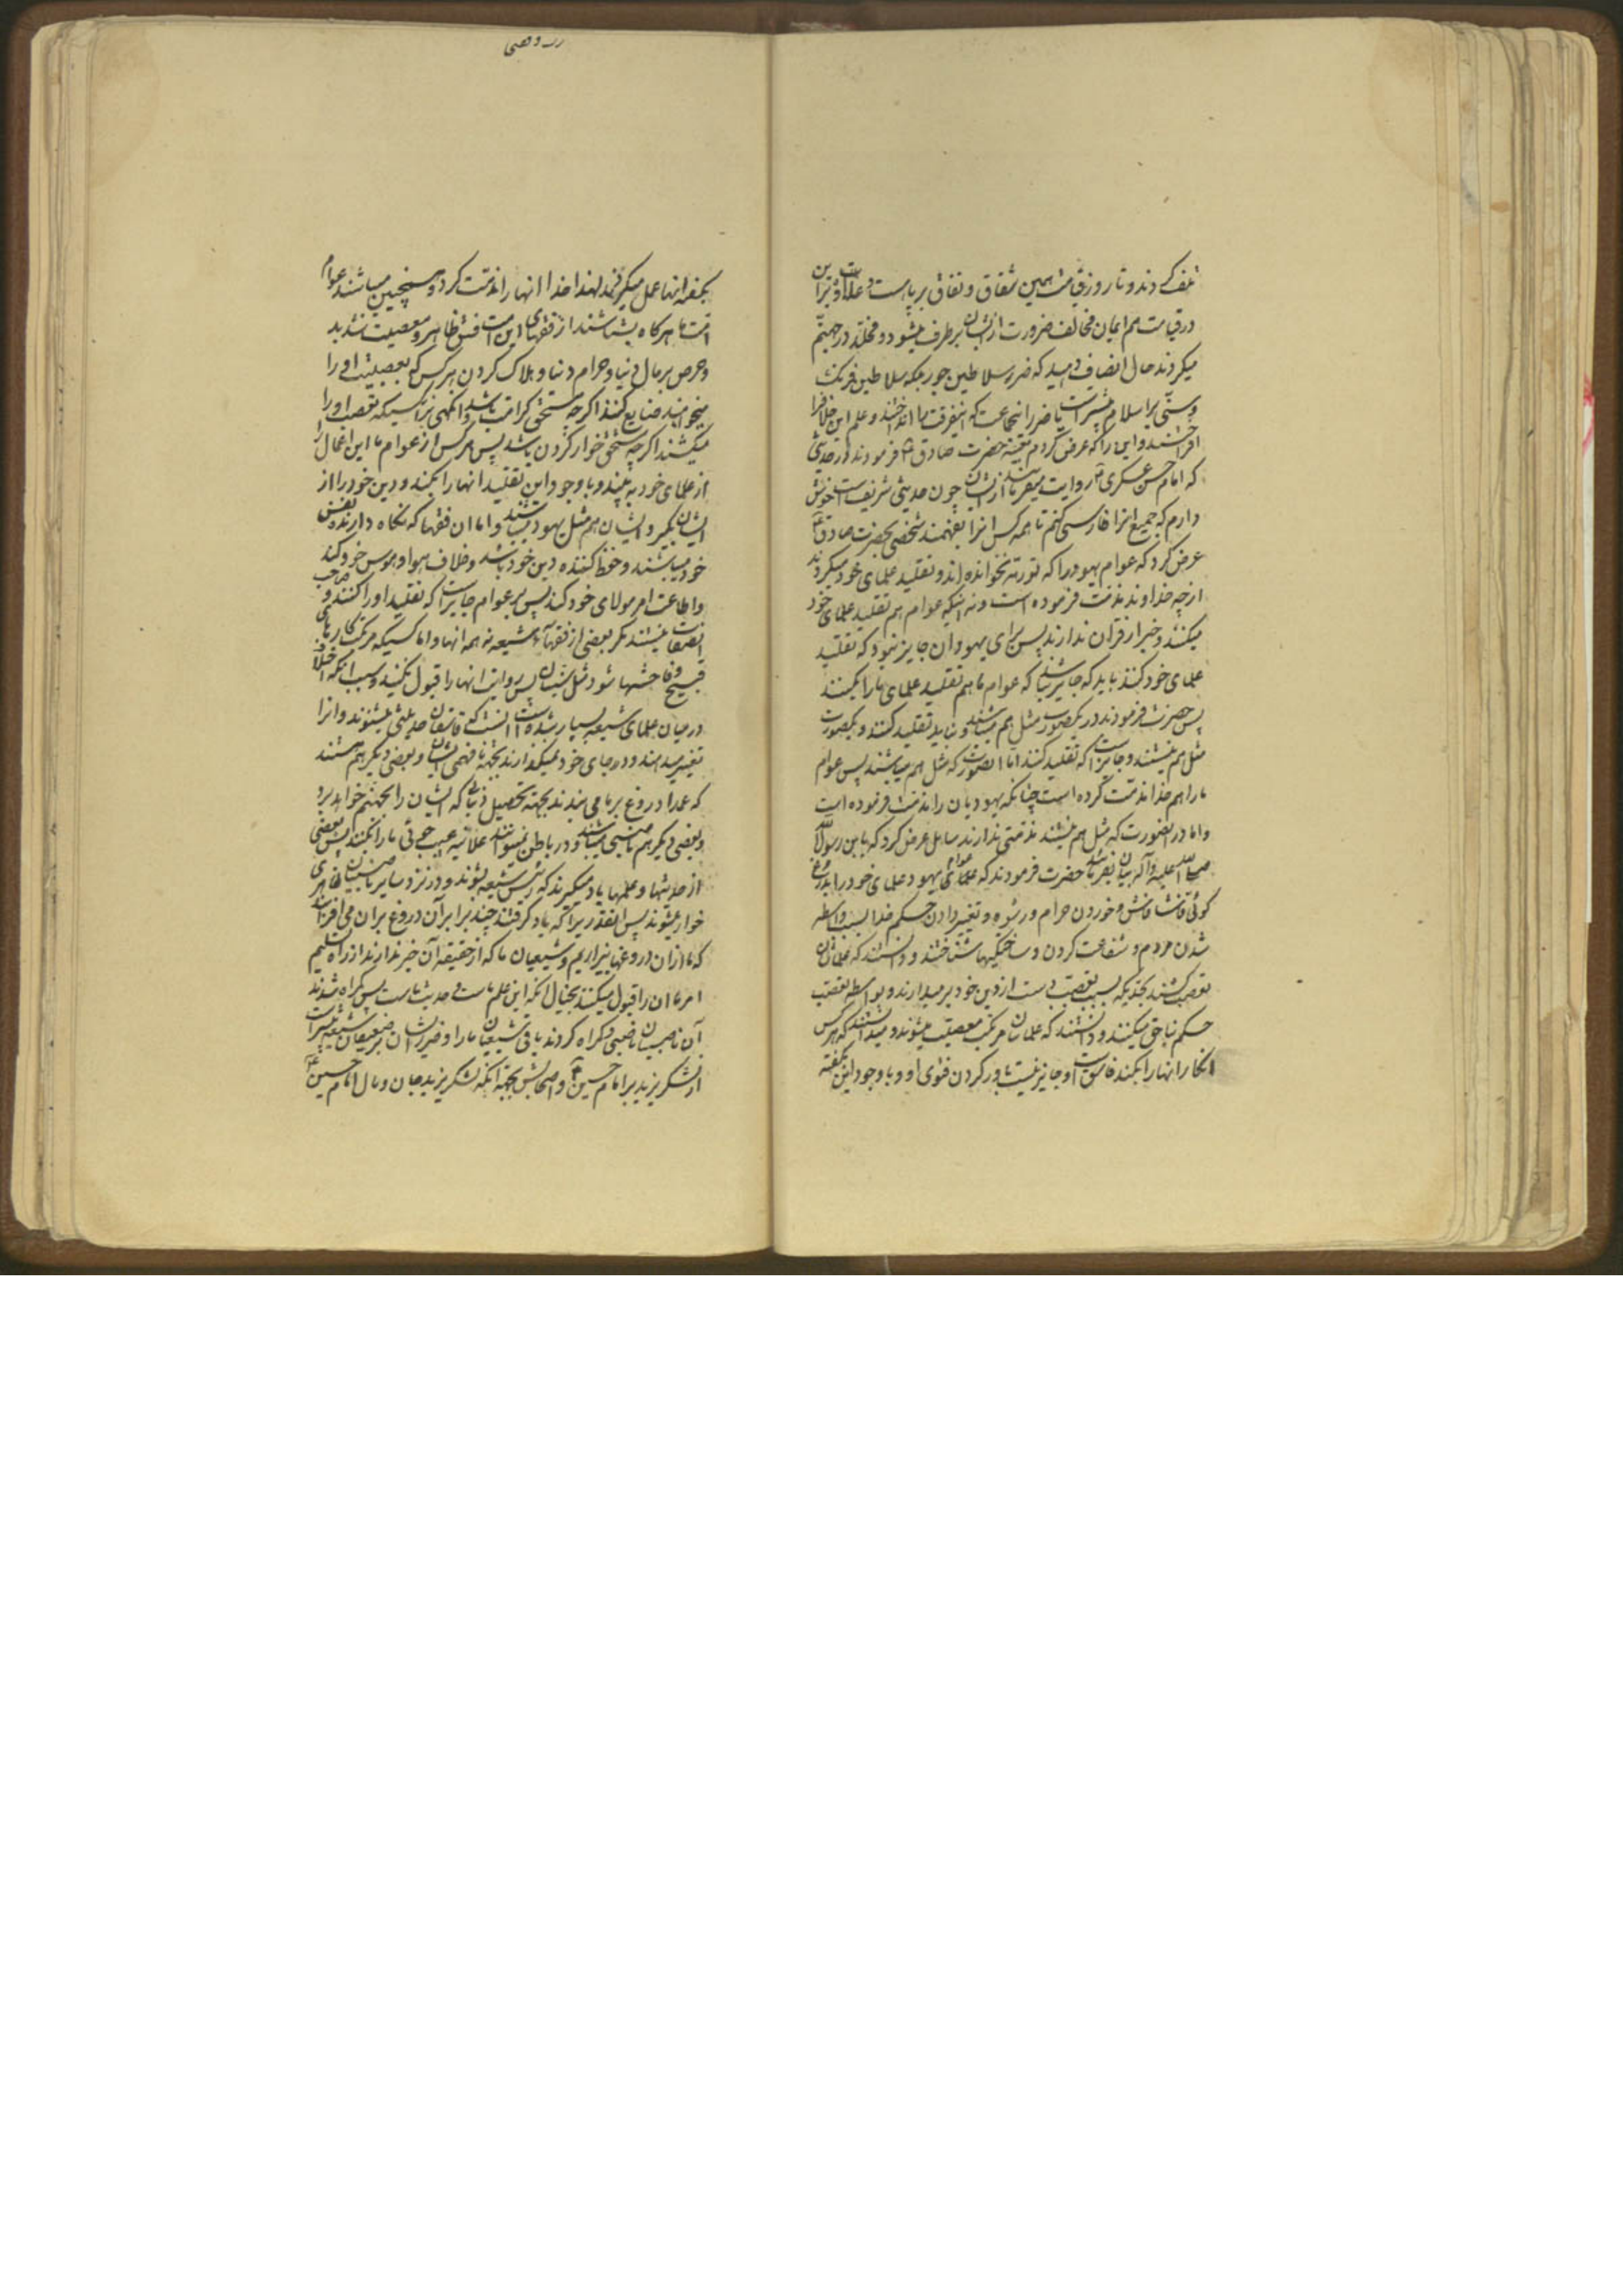 تلف کردند و تا روز قیامت همین شقاق و نفاق برپاست و علاوه براین
در قیامت هم ایمان مخالف ضرورت ازایشان برطرف میشود و مخلد در جهنم
میکردند حال انصاف دهید که ضرر سلاطین جور بلکه سلاطین فرنگ
و سنّی بر اسلام بیشتر است یا ضرر اینجماعت که اینفرقت ما انداختند و علم این خلاف را
افراختند و این را که عرض کردم بقیه حضرت صادق ع فرمودند در حدیثی
که امام حسن عسکری ع روایت میفرمایند ازایشان چون حدیثی شریف است خوش
دارم که جمیع انرا فارسی کنم تا همه کس انرا بفهمند شخصی بحضرت صادق ع
عرض کرد که عوام یهود را که توریة نخوانده اند و تقلید علمای خود میکردند
از چه خداوند مذمت فرموده است و نه اینکه عوام هم تقلید علمای خود
میکنند و خبر از قران ندارند پس برای یهودان جایز نبود که تقلید
علمای خود کنند باید که جایز نباشد که عوام ما هم تقلید علمای ما را بکنند
پس حضرت فرمودند در یکصورت مثل هم میباشند و نباید تقلید کنند و یکصورت
مثل هم نیستند و جایز است که تقلید کنند اما انصورت که مثل هم میباشند پس عوام
ما را هم خدا مذمت کرده است چنانکه یهودیان را مذمت فرموده است
و اما در انصورت که مثل هم نیستند مذمتی ندارند سایل عرض کرد که یابن رسول الله
صلی الله علیه و آله بیان بفرمائید حضرت فرمودند که عوام یهود علمای خود را بدروغ
گوئی فاش و خوردن حرام و رشوه و تغییر دادن حکم خدا بسبب واسطه
شدن مردم و شفاعت کردن و ساختگیها شناختند و دانستند که علماشان
تعصب کشند بحدیکه بسبب تعصب دست از دین خود برمیدارند و بواسطه تعصب
حکم بناحق میکنند و دانستند که علماشان مرتکب معصیت میشوند و میدانستند که هرکس
انکار انها را بکند فاسق است و جایز نیست باور کردن فتوی او و با وجود این بگفته
بگفته انها عمل میکردند لهذا خدا انها را مذمت کرد و همچنین میباشند عوام
امت ما هرگاه بشناسند از فقهای این امت فسق ظاهر و معصیت شدید
و حرص بر مال دنیا و حرام دنیا و هلاک کردن هرکس که بعصبیت او را
میخواهند ضایع کنند اگرچه مستحق کرامت باشد و انکهی برای کسیکه تعصب او را
میکشند اگرچه مستحق خوار کردن باشد پس هرکس از عوام ما این اعمال را
از علمای خود به بیند و با وجود این تقلید انها را بکند و دین خود را از
ایشان بگیرد ایشان هم مثل یهود میباشند و اما ان فقها که نگاه دارنده نفس
خود میباشند و حفظ کننده دین خود باشد و خلاف هوا و هوس خود کند
و اطاعت امر مولای خود کند پس بر عوام جایز است که تقلید او را کنند و صاحب
این صفات نیستند مگر بعضی از فقهای شیعه نه همه انها و اما کسیکه مرتکب کارهای
قبیح و فاحشها شود مثل سنیان پس روایت انها را قبول نکنید و سبب انکه اختلاف
در میان علمای شیعه بسیار شده است انست که فاسقان حدیثی میشنوند و انرا
تغییر میدهند و در جای خود نمیگذارند بجهة نافهمی ایشان و بعضی دیگر هم هستند
که عمدا دروغ بر ما می بندند بجهة تحصیل دنیا که ایشان را بجهنم خواهد برد
و بعضی دیگر هم ناصبی میباشند و در باطن نمیتوانند علانیه عیب جوئی ما را بکنند پس بعضی
از حدیثها و علمها یاد میگیرند که رئیس شیعه بشوند و در نزد سایر ناصبیان ظاهری
خوار میشوند پس انقدریرا که یاد گرفتند چند برابر آن دروغ بران می افزایند
که ما ازان دروغها بیزاریم و شیعیان ما که از حقیقه آن خبر ندارند از راه تسلیم
امر ما ان را قبول میکنند بخیال انکه این علم ماست و حدیث ماست پس گمراه شدند
آن ناصبیان ناصبی و گمراه کردند باقی شیعیان ما را و ضرر ایشان بر ضعیفان شیعه بیشتر است
از لشکر یزید بر امام حسین ع و اصحابش بجهة انکه لشکر یزید جان و مال امام حسین ع